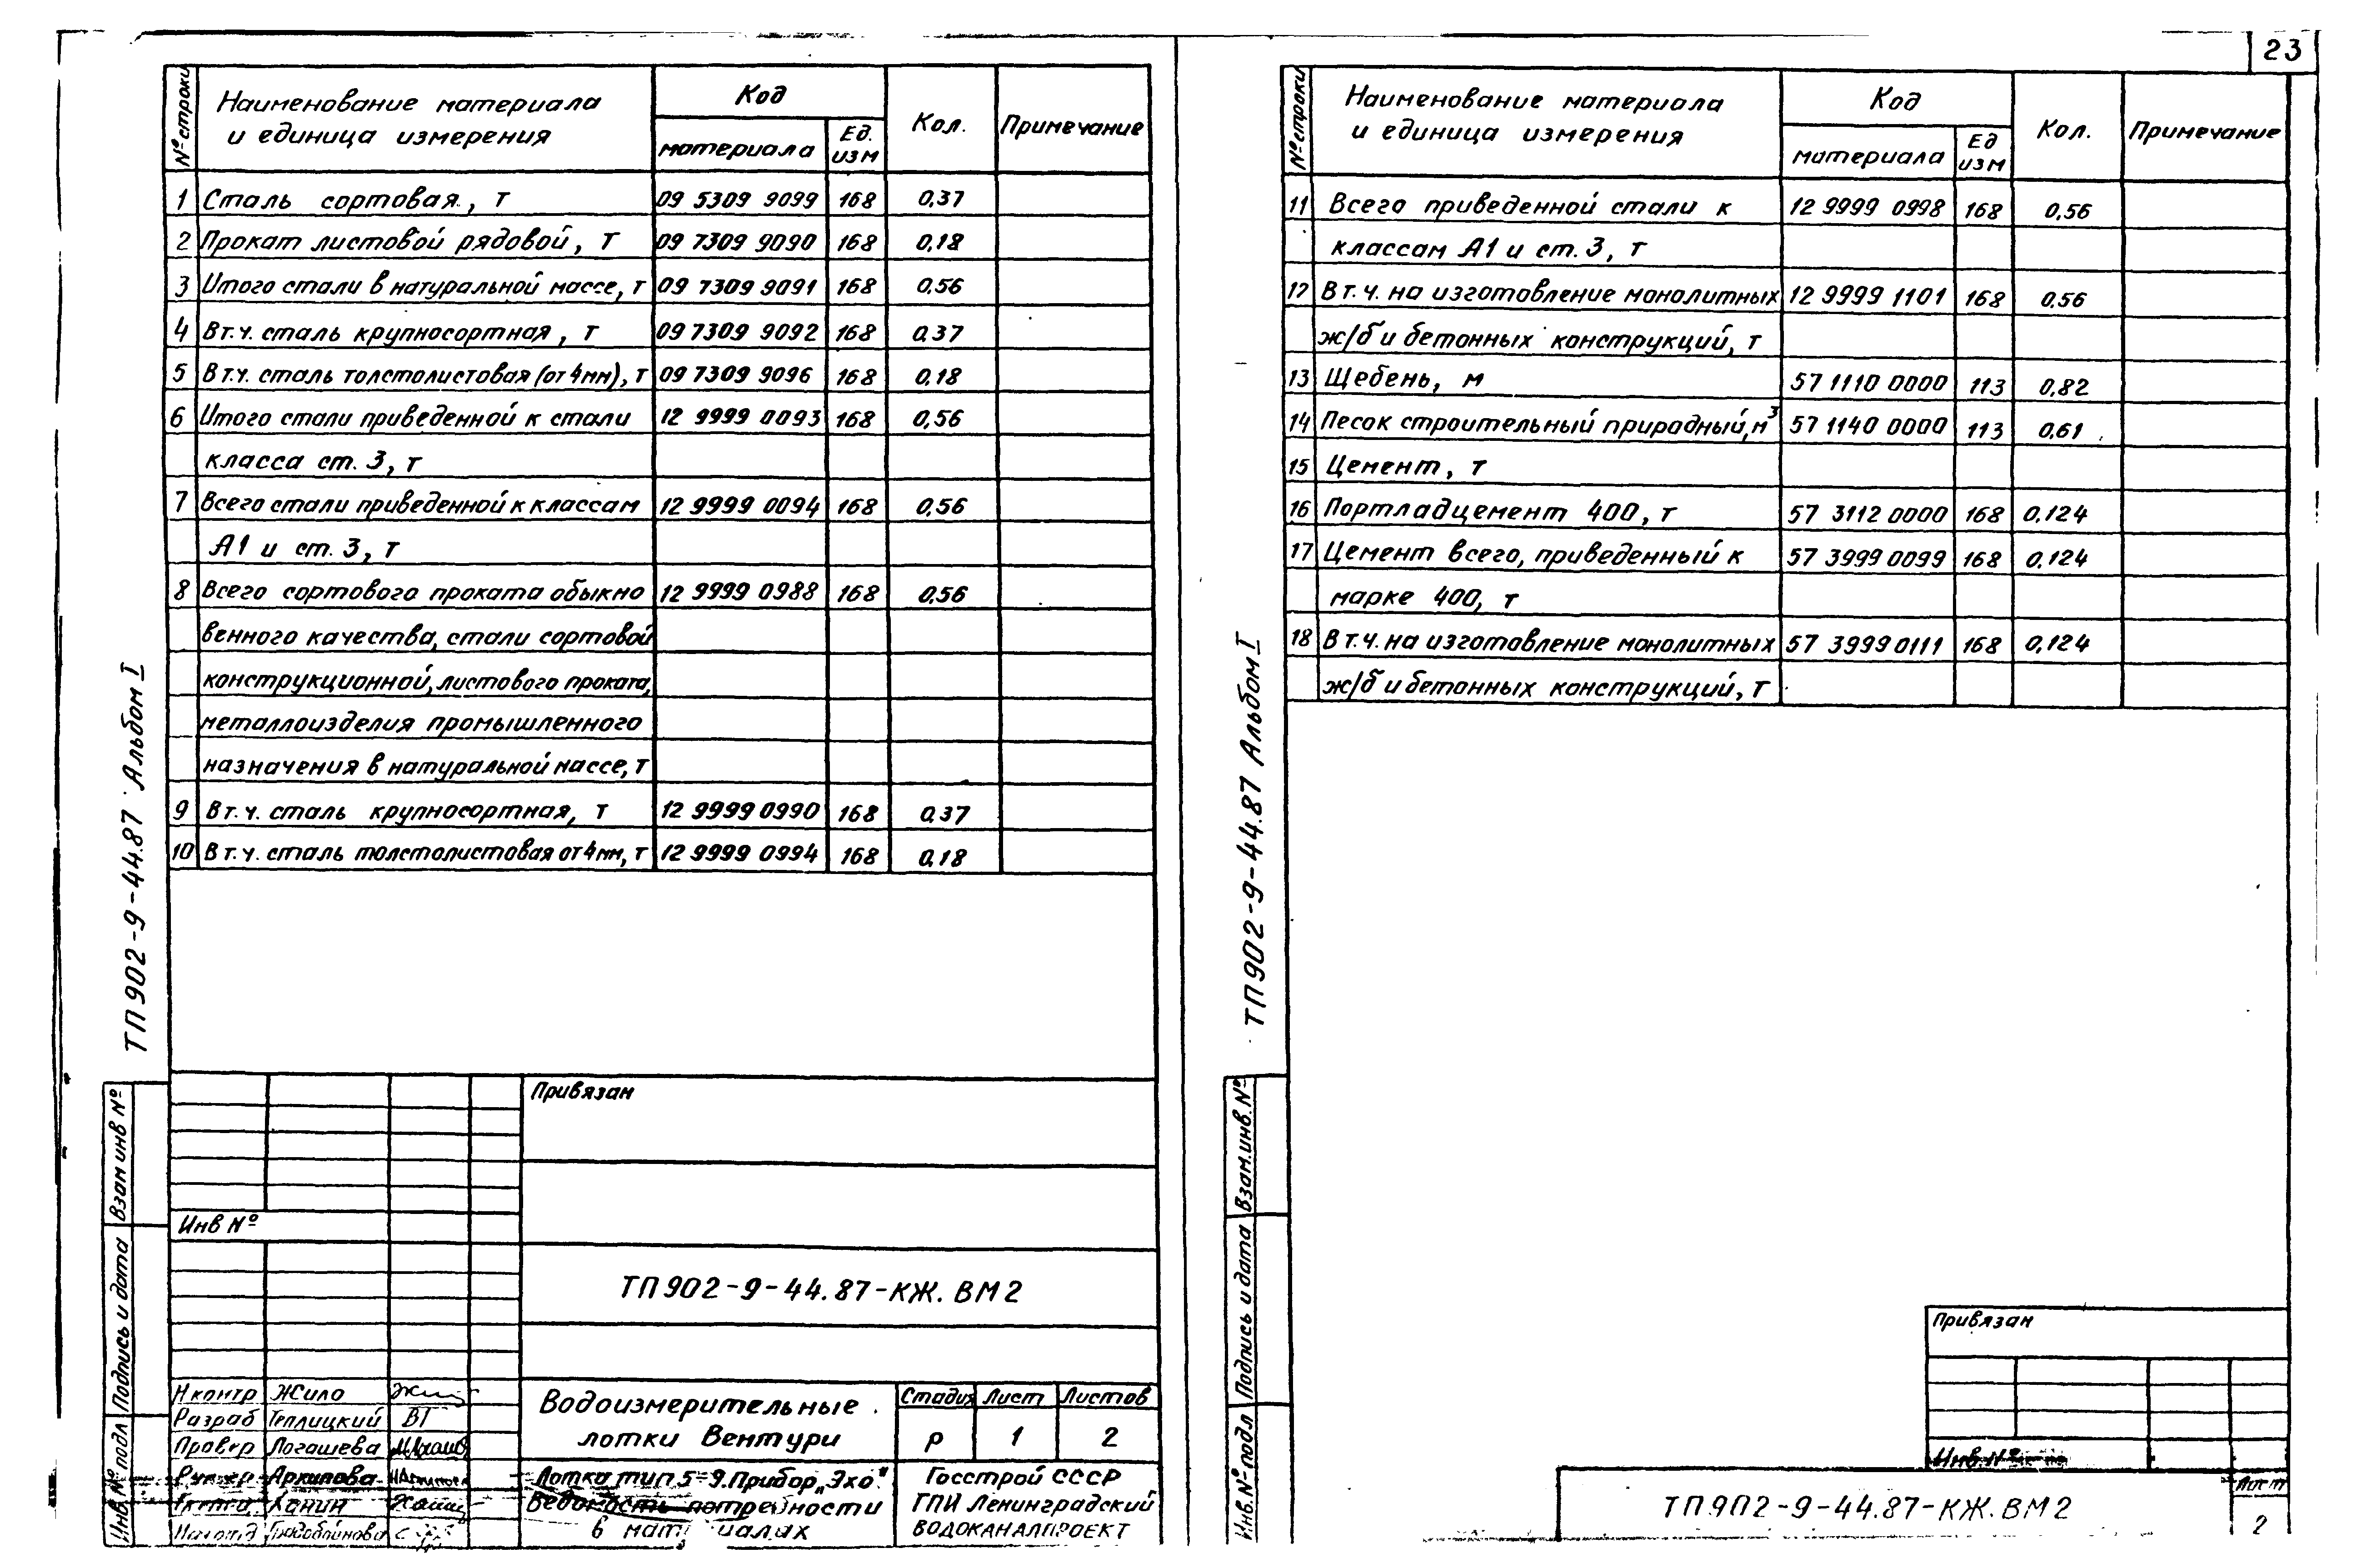 23
№ строки
Наименование материала
и единица измерения
Код
материала
Ед.
изм
Кол.
Примечание
1 Сталь сортовая, т 09 5309 9099 168 0,37
2 Прокат листовой рядовой, т 09 7309 9090 168 0,18
3 Итого стали в натуральной массе, т 09 7309 9091 168 0,56
4 В т.ч. сталь крупносортная, т 09 7309 9092 168 0,37
5 В т.ч. сталь толстолистовая (от 4мм), т 09 7309 9096 168 0,18
6 Итого стали приведенной к стали 12 9999 0093 168 0,56
класса ст. 3, т
7 Всего стали приведенной к классам 12 9999 0094 168 0,56
А1 и ст. 3, т
8 Всего сортового проката обыкно 12 9999 0988 168 0,56
венного качества, стали сортовой
конструкционной, листового проката,
металлоизделия промышленного
назначения в натуральной массе, т
9 В т.ч. сталь крупносортная, т 12 9999 0990 168 0,37
10 В т.ч. сталь толстолистовая от 4мм, т 12 9999 0994 168 0,18
ТП902-9-44.87 Альбом I
Взам инв №
Подпись и дата
Инв. № подл
Привязан
Инв №
ТП902-9-44.87-КЖ.ВМ2
Н.контр Жило
Разраб Теплицкий ВТ
Провер Логашева
Рук.гер Архипова
Ханин
Градобойнова
Водоизмерительные
лотки Вентури
Стадия Лист Листов
Р 1 2
Лотки тип 5-9. Прибор „Эхо"
Ведомость потребности
в материалах
Госстрой СССР
ГПИ Ленинградский
ВОДОКАНАЛПРОЕКТ
№ строки
Наименование материала
и единица измерения
Код
материала
Ед
изм
Кол.
Примечание
11 Всего приведенной стали к 12 9999 0998 168 0,56
классам А1 и ст. 3, т
12 В т.ч. на изготовление монолитных 12 9999 1101 168 0,56
ж/б и бетонных конструкций, т
13 Щебень, м 57 1110 0000 113 0,82
14 Песок строительный природный, м³ 57 1140 0000 113 0,61
15 Цемент, т
16 Портладцемент 400, т 57 3112 0000 168 0,124
17 Цемент всего, приведенный к 57 3999 0099 168 0,124
марке 400, т
18 В т.ч. на изготовление монолитных 57 3999 0111 168 0,124
ж/б и бетонных конструкций, т
ТП902-9-44.87 Альбом I
Взам.инв.№
Подпись и дата
Инв. № подл
Привязан
Инв. №
ТП902-9-44.87-КЖ.ВМ2
Лист
2